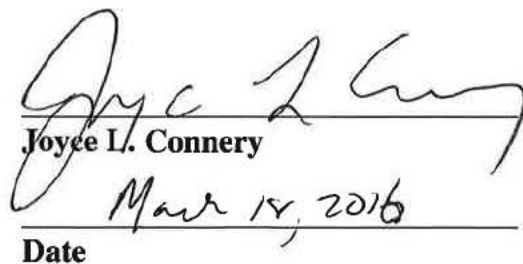 Joyce L Connery
Joyce L. Connery
March 18, 2016
Date